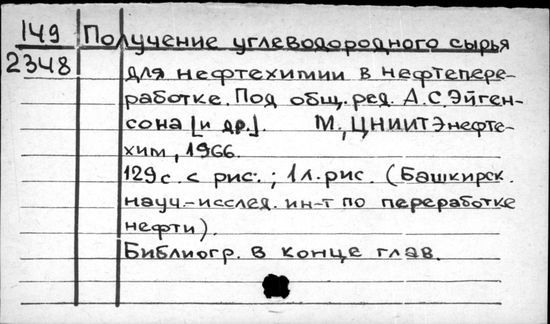 149 Получение углеводородного сырья
2348 для нефтехимии в нефтепере-
работке. Под общ. ред. А.С. Эйген-
сона [и др.]. М., ЦНИИТЭнефте-
хим, 1966.
129с. с рис.; 1л. рис. (Башкирск.
науч.-исслед. ин-т по переработке
нефти).
Библиогр. в конце глав.